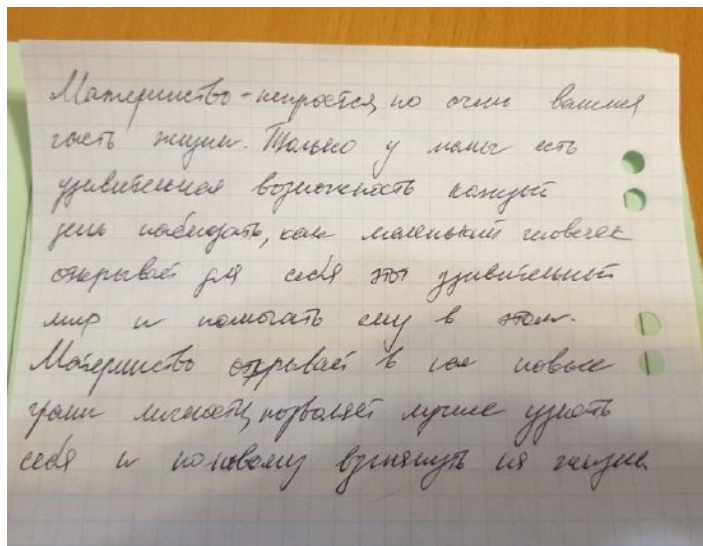 Материнство - непростая, но очень важная
часть жизни. Только у мамы есть
удивительная возможность каждый
день наблюдать, как маленький человечек
открывает для себя этот удивительный
мир и помогать ему в этом.
Материнство открывает в нас новые
грани личности, позволяет лучше узнать
себя и по новому взглянуть на жизнь